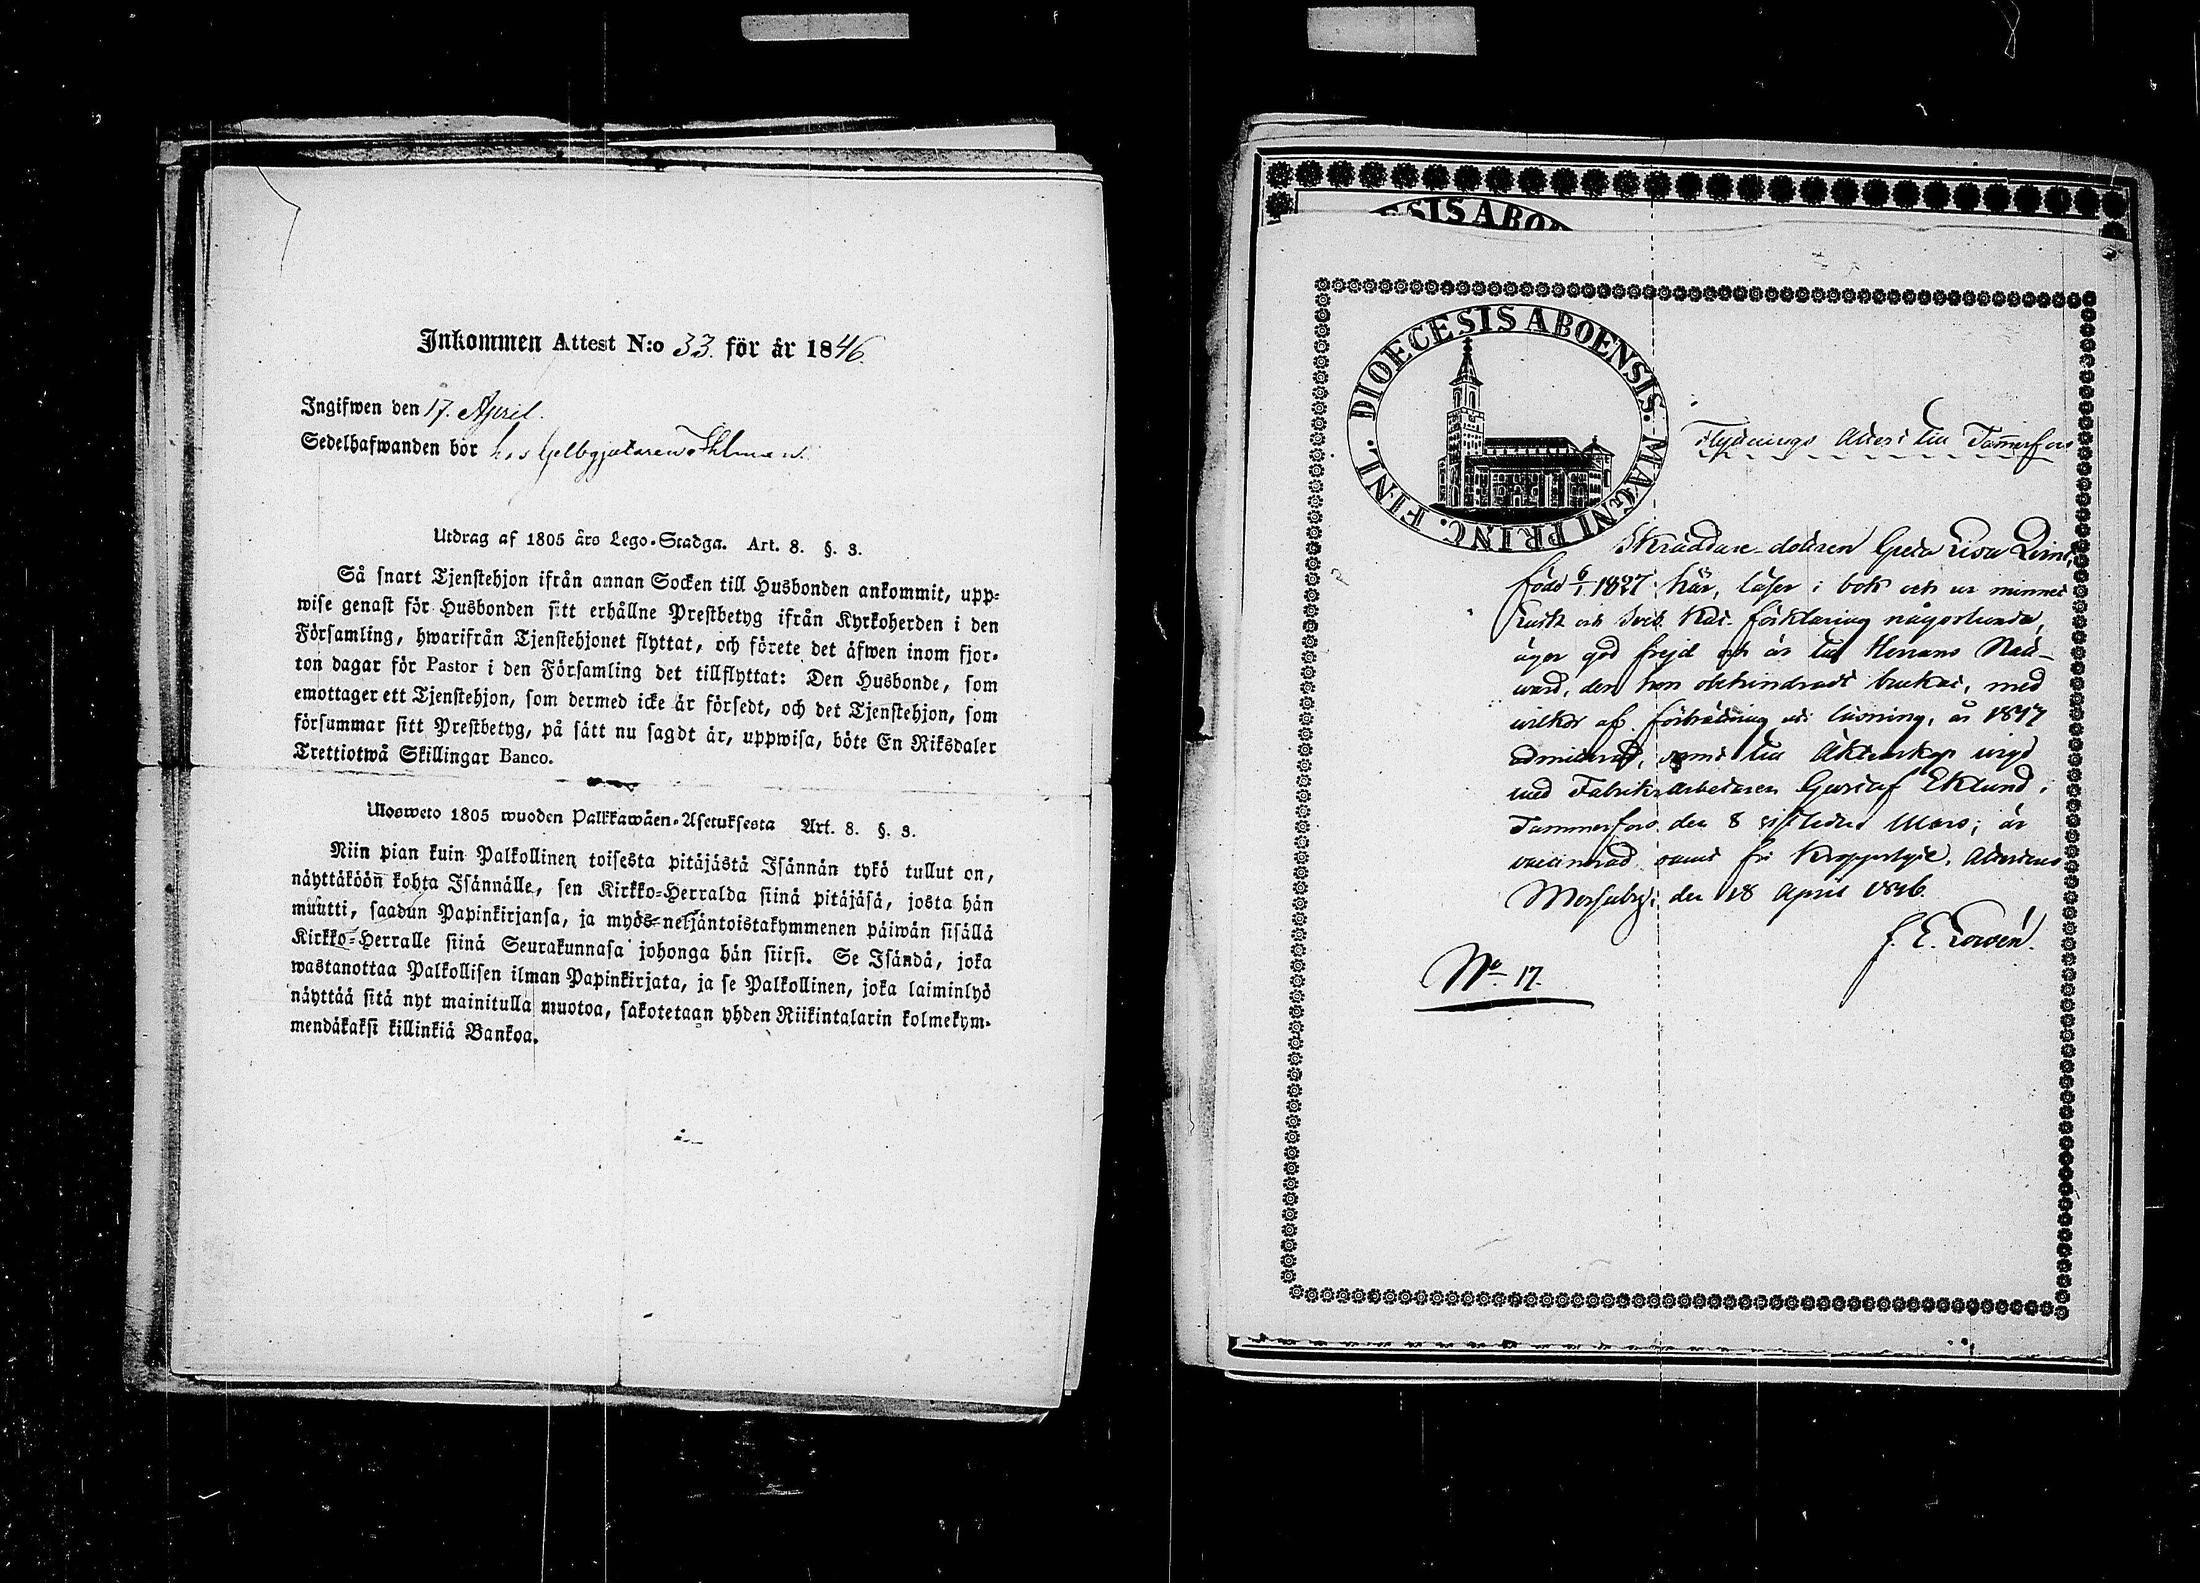 Inkommen Attest N:o 33. för år 1846.
Ingifwen den 17. April.
Sedelhafwanden bor hos Gelbgjutaren Ihlman.
Utdrag af 1805 års Lego-Stadga. Art. 8. §. 3.
Så snart Tjenstehjon ifrån annan Socken till Husbonden ankommit, upp-
wise genast för Husbonden sitt erhållne Prestbetyg ifrån Kyrkoherden i den
Församling, hwarifrån Tjenstehjonet flyttat, och förete det äfwen inom fjor-
ton dagar för Pastor i den Församling det tillflyttat: Den Husbonde, som
emottager ett Tjenstehjon, som dermed icke är försedt, och det Tjenstehjon, som
försummar sitt Prestbetyg, på sätt nu sagdt är, uppwisa, böte En Riksdaler
Trettiotwå Skillingar Banco.
Ulosweto 1805 wuoden Palkkawäen-Asetuksesta Art. 8. §. 3.
Niin pian kuin Palkollinen toisesta pitäjästä Isännän tykö tullut on,
näyttäköön kohta Isännälle, sen Kirkko-Herralda siinä pitäjäsä, josta hän
muutti, saadun Papinkirjansa, ja myös neljäntoistakymmenen päiwän sisällä
Kirkko-Herralle siinä Seurakunnasa johonga hän siirsi. Se Isändä, joka
wastanottaa Palkollisen ilman Papinkirjata, ja se Palkollinen, joka laiminlyö
näyttää sitä nyt mainitulla muotoa, sakotetaan yhden Riikintalarin kolmekym-
mendäkaksi killinkiä Bankoa.
8
ESIS ABO
DIOECESIS ABOENSIS. MAGNI PRINC. FINL.
Flyttnings Attest till Tammerfors
Skräddare-dottren Greta Lisa Lind,
född 6/1 1827 här, läser i bok och ur minnet
Luth och Sveb. Kat. förklaring någorlunda,
äger god frejd och är till Herrans Natt-
ward, den hon obehindradt brukar, med
wilkor af förbättring uti läsning, år 1847
admitterad, samt till Äktenskap wigd
med Fabriksarbetaren Gustaf Eklund i
Tammerfors den 8 sistledne Mars; är
vaccinerad samt fri Kropperlyte. Attesteras
den 18 April 1846.
No 17.